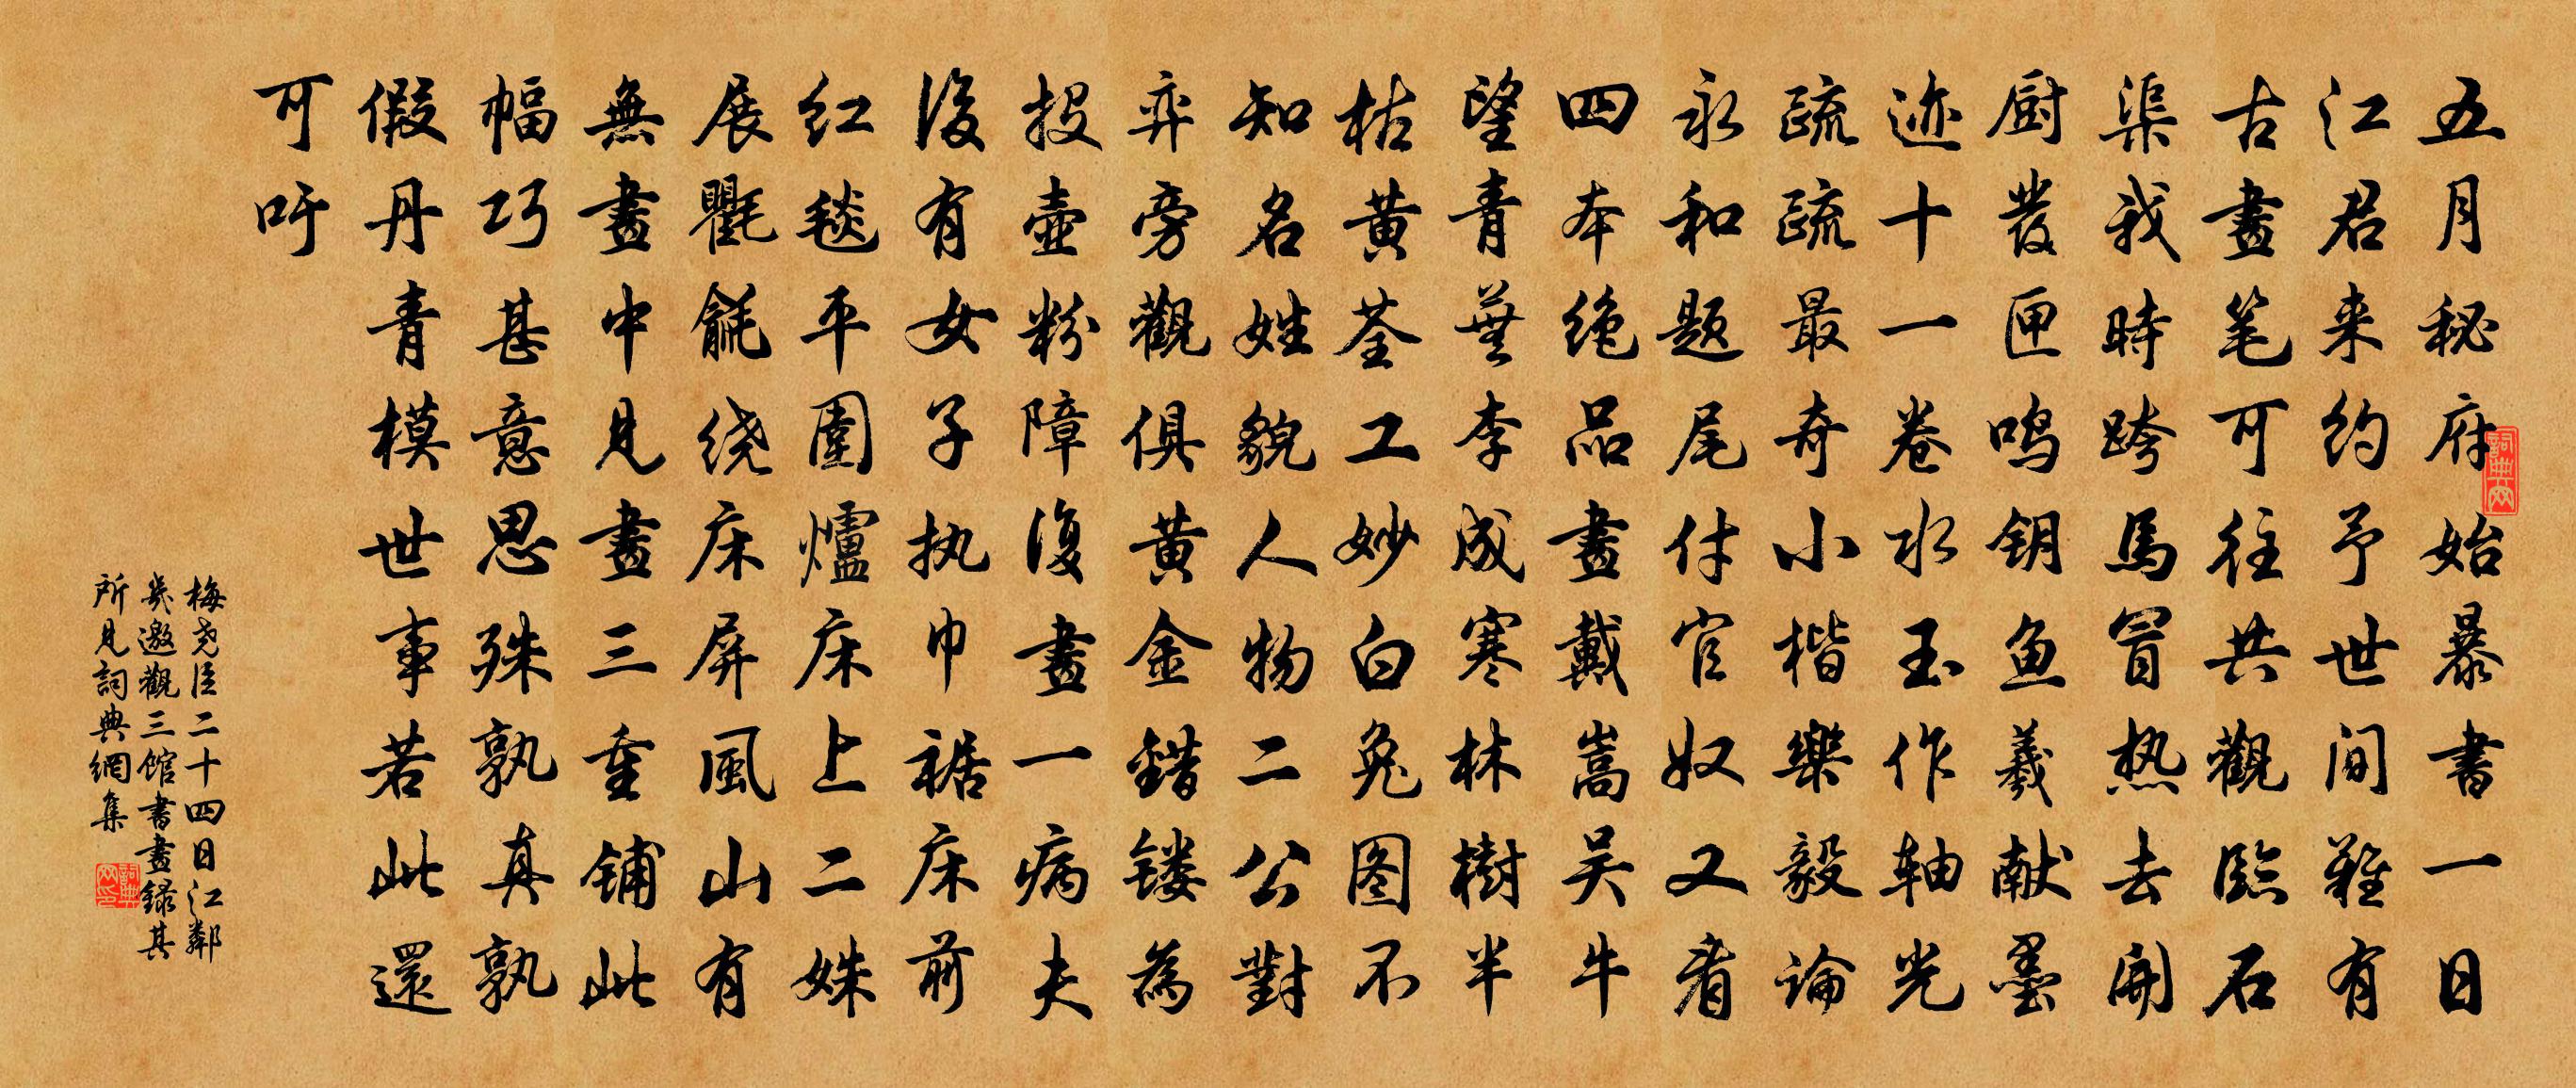 五月秘府始暴書一日
江君来约予世间難有
古畫笔可往共觀臨石
渠我時跨馬冒热去開
厨發匣鸣钥魚羲献墨
迹十一卷水玉作轴光
疏疏最奇小楷樂毅論
永和题尾付官奴又看
四本绝品畫戴嵩吴牛
望青蕪李成寒林樹半
枯黄荃工妙白兔图不
知名姓貌人物二公對
弈旁觀俱黄金錯镂為
投壶粉障復畫一病夫
後有女子执巾裾床前
红毯平圍爐床上二姝
展氍毹绕床屏風山有
無畫中見畫三重鋪此
幅巧甚意思殊孰真孰
假丹青模世事若此還
可吁
梅尧臣二十四日江鄰
幾邀觀三馆書畫録其
所見詞典網集
詞典网
詞典网印